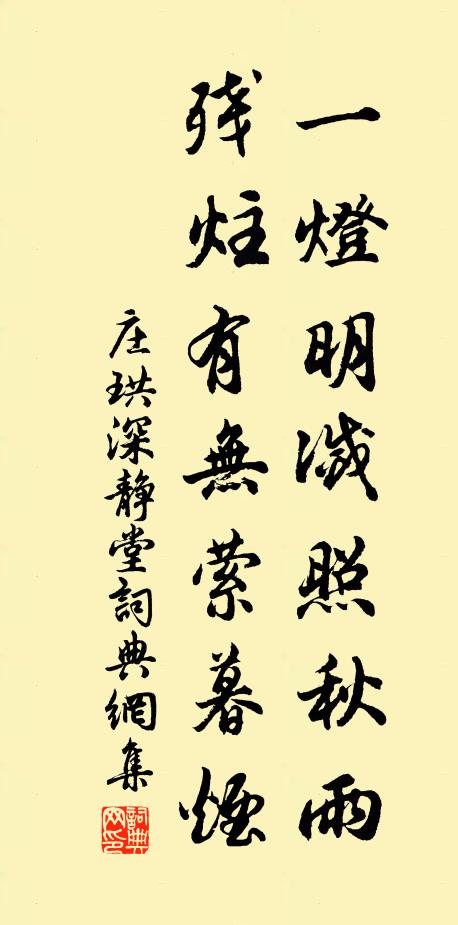 一燈明滅照秋雨
残炷有無萦暮煙
庄珙深静堂詞典網集
詞典网印